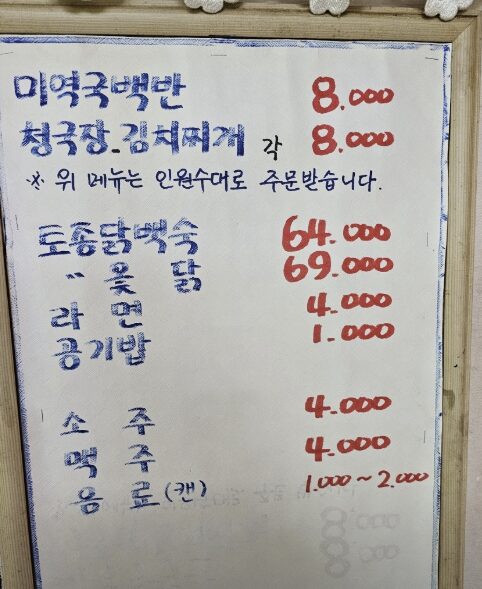 미역국백반 8.000
청국장.김치찌개 각 8.000
※ 위 메뉴는 인원수대로 주문받습니다.
토종닭백숙 64.000
〃 옻 닭 69.000
라 면 4.000
공기밥 1.000
소 주 4.000
맥 주 4.000
음 료(캔) 1.000~2.000